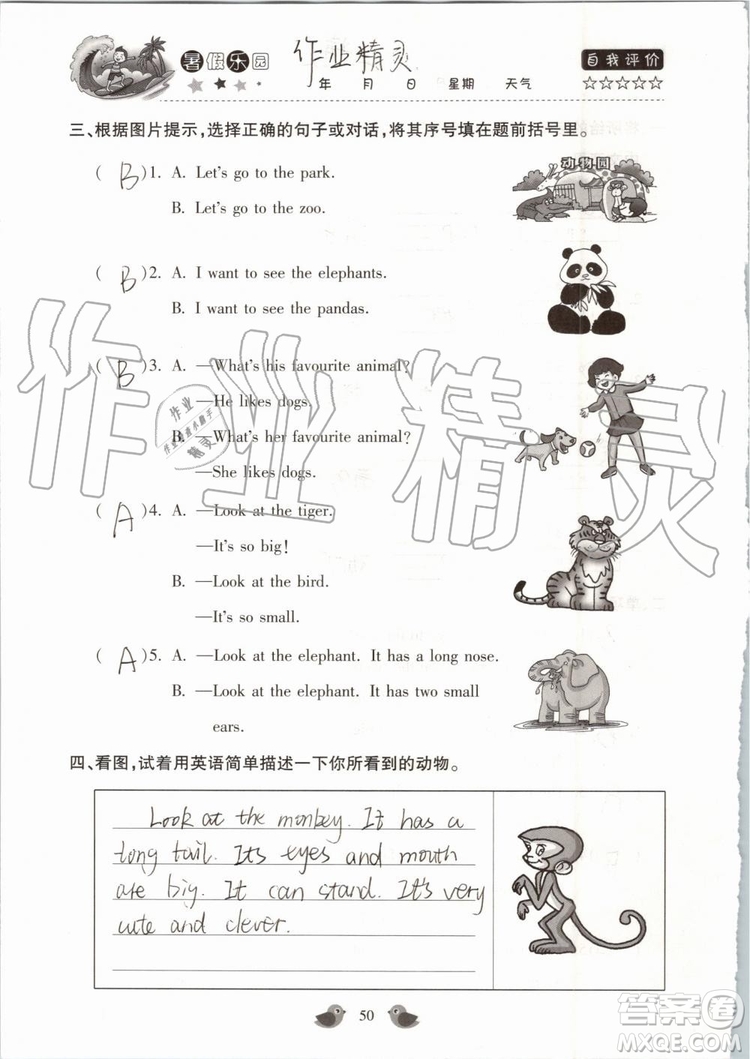 暑假乐园
作业精灵
自我评价
年 月 日 星期 天气
☆☆☆☆☆
三、根据图片提示,选择正确的句子或对话,将其序号填在题前括号里。
动物园
( B )1. A. Let's go to the park.
B. Let's go to the zoo.
( B )2. A. I want to see the elephants.
B. I want to see the pandas.
( B )3. A. —What's his favourite animal?
—He likes dogs.
B. —What's her favourite animal?
—She likes dogs.
( A )4. A. —Look at the tiger.
—It's so big!
B. —Look at the bird.
—It's so small.
( A )5. A. —Look at the elephant. It has a long nose.
B. —Look at the elephant. It has two small
ears.
作业精灵
作业
精灵
四、看图,试着用英语简单描述一下你所看到的动物。
Look at the monkey. It has a
long tail. It's eyes and mouth
are big. It can stand. It's very
cute and clever.
50
答案圈
MXQE.COM